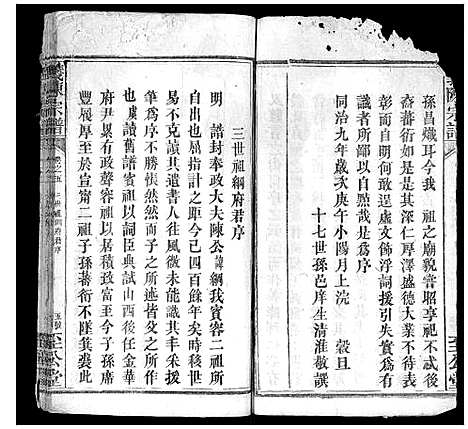 孫昌熾耳今我　祖之廟貌音昭享祀不忒後
裔蕃衍如是其深仁厚澤盛德大業不待表
彰而自明何敢逞虛文飾浮詞援引失實為有
識者所鄙以自黙哉是為序
同治九年歲次庚午小陽月上浣　穀旦
十七世孫邑庠生清淮敬譔
三世祖綱府君序
明　誥封奉政大夫陳公諱綱我實容二祖所
自出也屈指計之距今已四百餘年矣時移世
易不克讀其遺書人往風微未能識其丰采援
筆為序不勝悵然然而子之所述皆父之所作
也虞讀舊譜賓祖以詞臣典試山西後任金華
府尹累有政聲容祖以居積致富至今子孫席
豐履厚至於宣甯二祖子孫蕃衍不墜箕裘此
陳宗譜